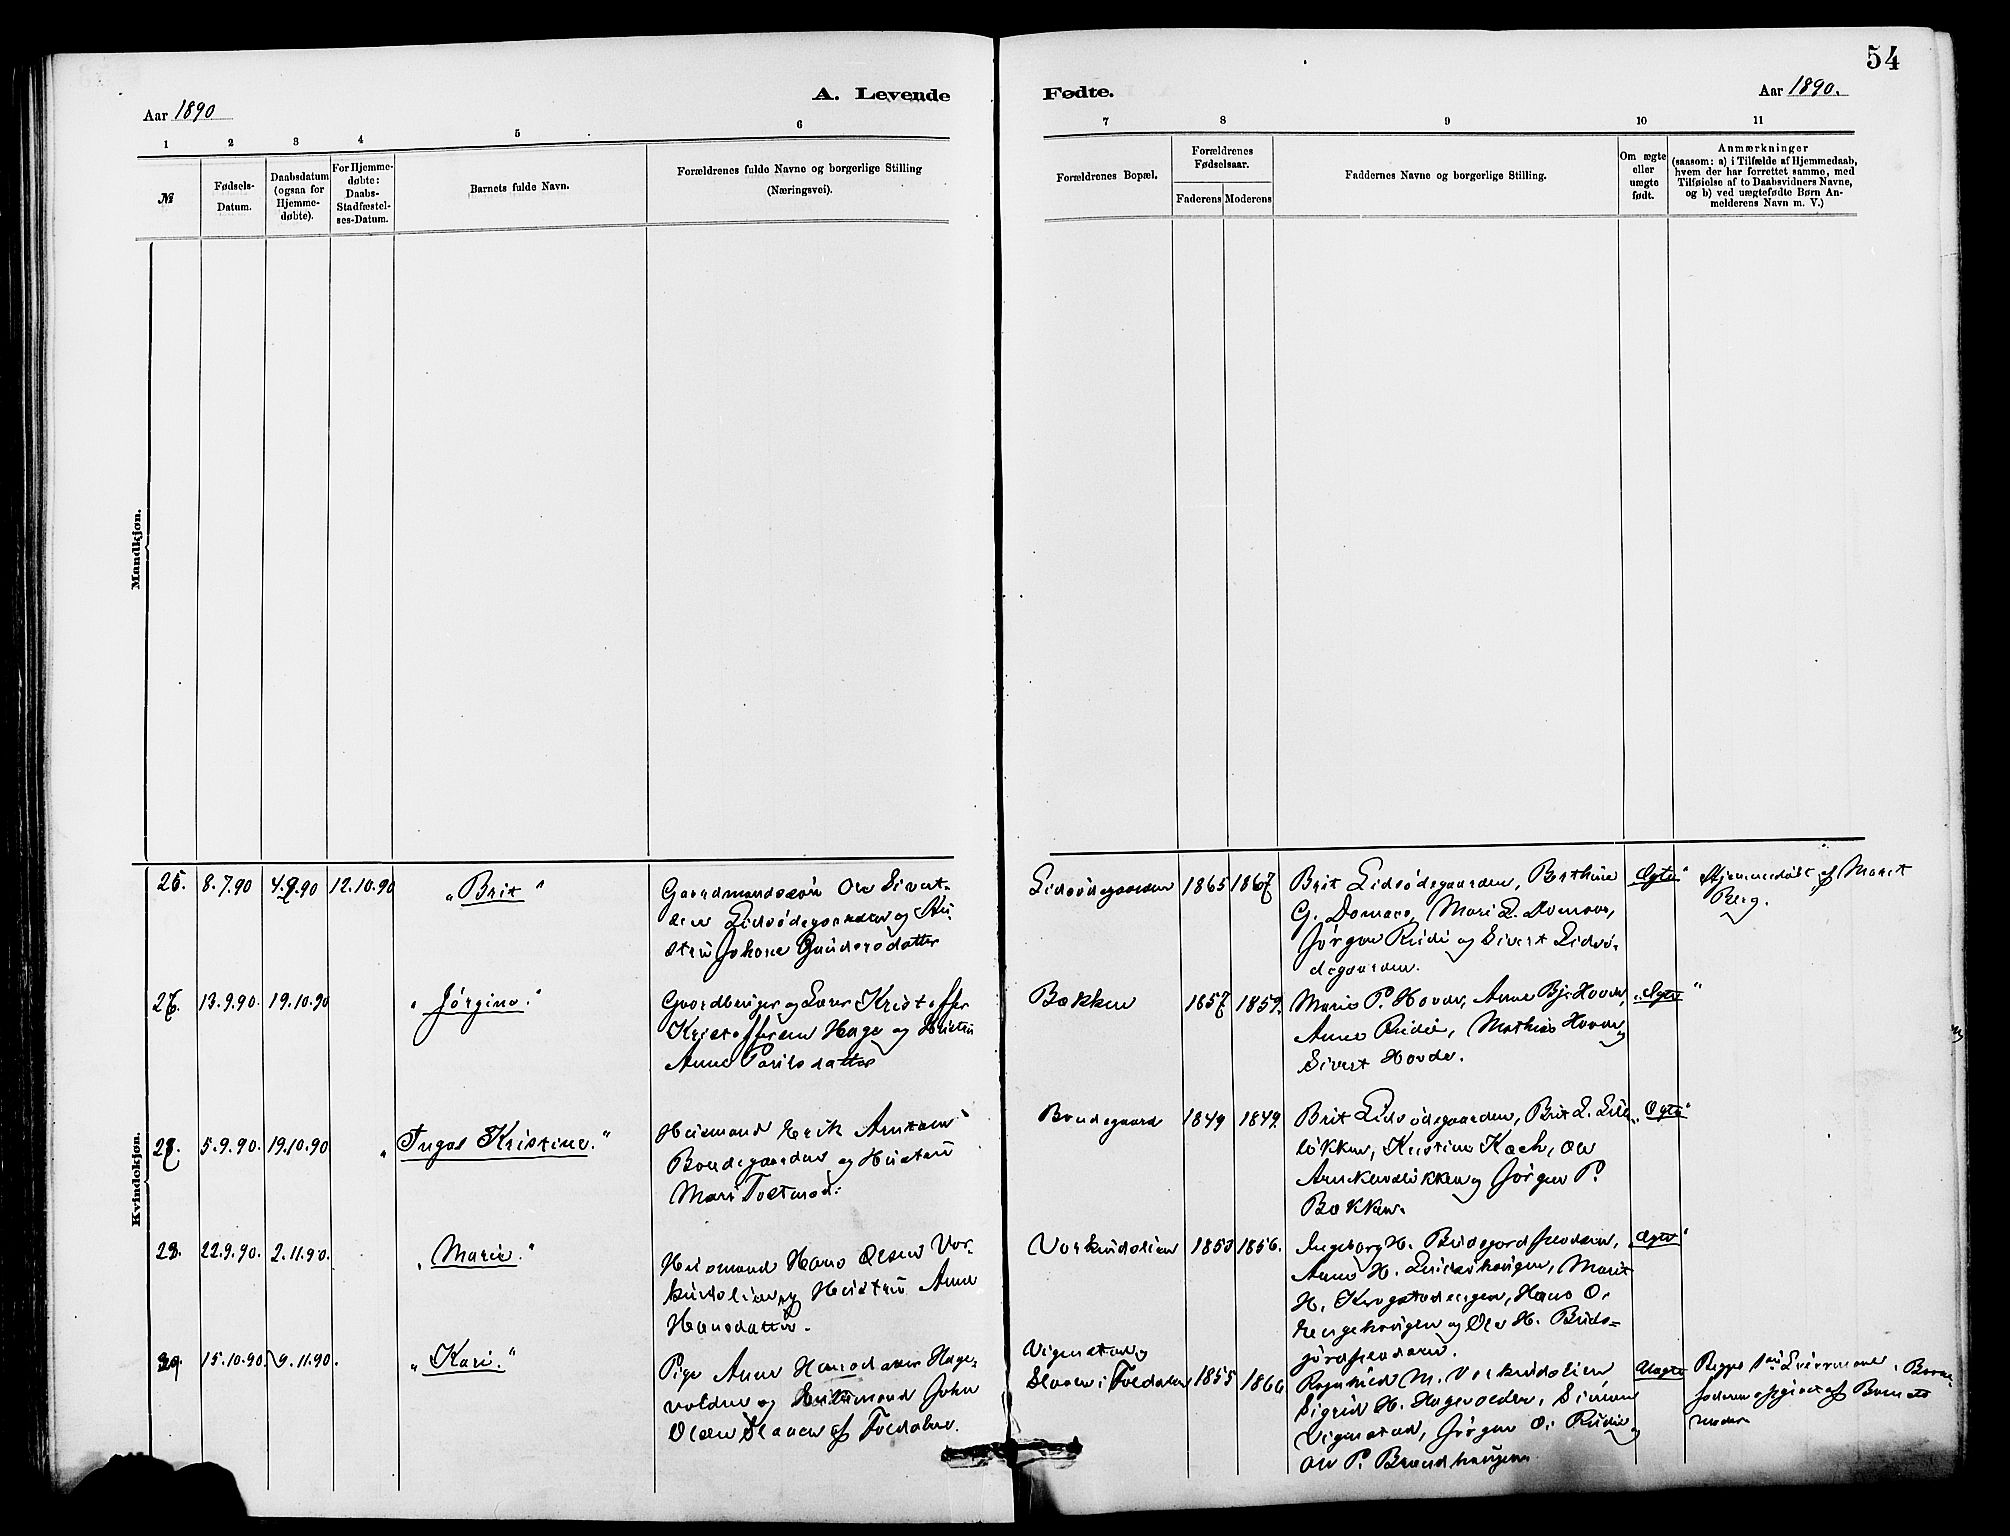 54
Aar 1890
A. Levende
Fødte.
Aar 1890.
1 2 3 4 5 6
7 8 9 10 11
№
Fødsels-
Datum.
Daabsdatum
(ogsaa for
Hjemme-
døbte).
For Hjemme-
døbte:
Daabs-
Stadfæstel-
ses-Datum.
Barnets fulde Navn.
Forældrenes fulde Navne og borgerlige Stilling
(Næringsvei).
Forældrenes Bopæl.
Forældrenes
Fødselsaar.
Faderens Moderens
Faddernes Navne og borgerlige Stilling.
Om ægte
eller
uægte
født.
Anmærkninger
(saasom: a) i Tilfælde af Hjemmedaab,
hvem der har forrettet samme, med
Tilføielse af to Daabsvidners Navne,
og b) ved uægtefødte Børn An-
melderens Navn m. V.)
Mandkjøn.
Kvindekjøn.
25. 8.7.90 4.9.90 12.10.90
"Brit"
Gaardmandssøn Ole Sivert-
sen Lidsødegaarden og Hu-
stru Johane Gundersdatter
Lidsødegaarden 1865 1867
Brit Lidsødegaarden, Berthine
G. Domaas, Mari L. Domaas,
Jørgen Rudi og Sivert Lidsø-
degaarden.
Ægte"
Hjemmedøbt af Marit
Berg.
26. 13.9.90. 19.10.90
"Jørgine."
Gaardbruger og Lærer Kristoffer
Kristoffersen Hage og Hustru
Anne Poulsdatter
Bakken 1857 1859.
Marie P. Hovde, Anne Bj. Hovde
Anne Rudi, Mathias Hovde og
Sivert Hovde.
"Ægte"
27. 5.9.90. 19.10.90
"Ingas Kristine."
Husmand Erik Amundsen
Bondegaarden og Hustru
Mari Tostensd:
Bondegaard 1849 1849.
Brit Lidsødegaarden, Brit L. Lille
løkken, Kristine Koch, Ole
og Jørgen P.
Bakken.
"Ægte"
28. 22.9.90. 2.11.90.
"Marie."
Husmand Hans Olsen Vor-
kinslien og Hustru Anne
Hansdatter.
Vorkinslien 1850 1856.
Ingeborg H.
Anne H. Marit
H. Hans O.
og Ole H. Buds-
Ægte"
29. 15.10.90 9.11.90.
"Kari."
Pige Anne Hansdatter Hage-
volden og Husmand John
Olsen Slaaen af Foldalen.
Vigenstad og
Slaaen i Foldalen 1855 1866
Ragnhild M. Vorkinslien
Sigrid H. Hagevolden, Simen
Vigenstad, Jørgen O. Rudi og
Ole P. Brandhaugen
Uægte
af Barnets
moder